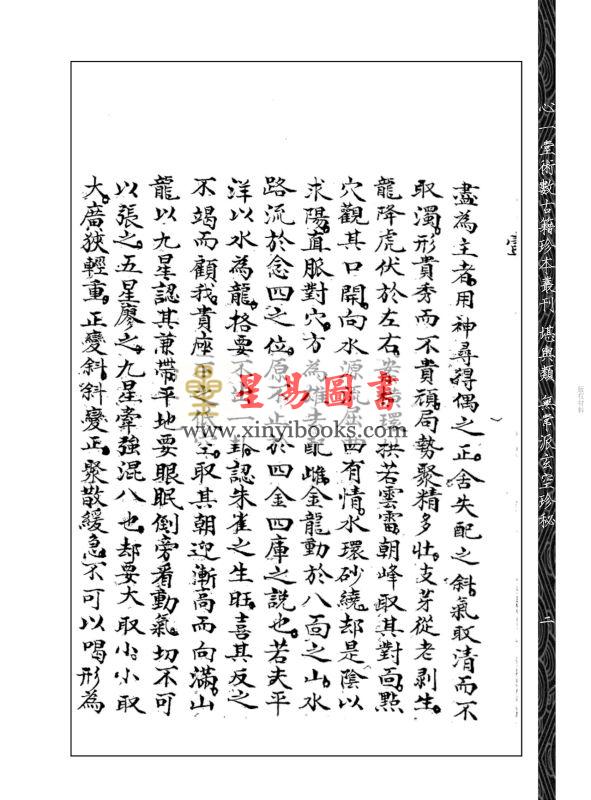 心一堂術數古籍珍本叢刊 堪輿類 無常派玄空珍秘 二
版权材料
壹
盡為主者。用神尋得偶之正。舍失配之斜。氣取清而不
取濁。形貴秀而不貴頑。局勢聚精多壯。支芽從老剝生。
龍降虎伏於左右。環拱若雲雷。朝峰取其對面。點
穴觀其口開向水源流屈曲有情。水環砂繞却是陰以
求陽。直脈對穴。方為雄去配雌。金龍動於八面之山。水
路流於念四之位。原不止於四金四庫之說也。若夫平
洋以水為龍。格要不出一卦。認朱雀之生旺。喜其反之
不竭而顧我。貴座空。取其朝迎漸高而向滿。山
龍以九星認其兼帶。平地要眼眠倒旁看動氣。切不可
以張之五星廖之九星牽強混八也。却要大取小。小取
大。廣狹輕重。正變斜。斜變正。聚散緩急。不可以喝形為
星易圖書
www.xinyibooks.com